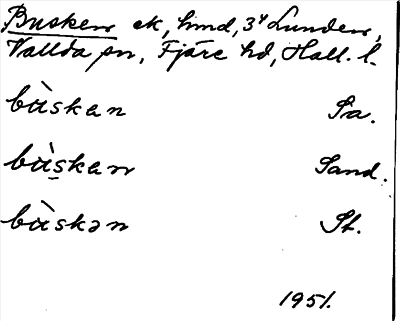 Busken ek, hmd, 3⁴ Lunden,
Vallda sn, Fjäre hd, Hall. l.
bùskan Sa.
bùskan Sand.
bùskən St.
1951.